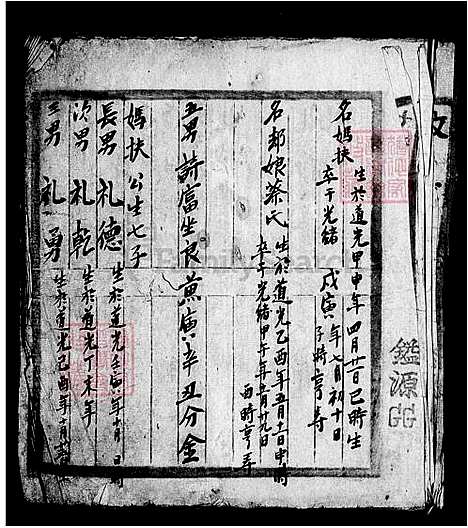 名媽扶 生於道光甲申年四月廿一日巳時生
卒于光緒戊寅年七月初十日子時享壽
名却娘蔡氏 生於道光乙酉年五月十一日申時
卒于光緒甲午年五月廿九日酉時享壽
五男詩富坐艮兼寅辛丑分金
媽扶公生七子
長男 礼德 生於道光壬寅年十月 日時
次男 礼乾 生於道光丁未年
三男 礼勇 生於道光己酉年十月
鑑源